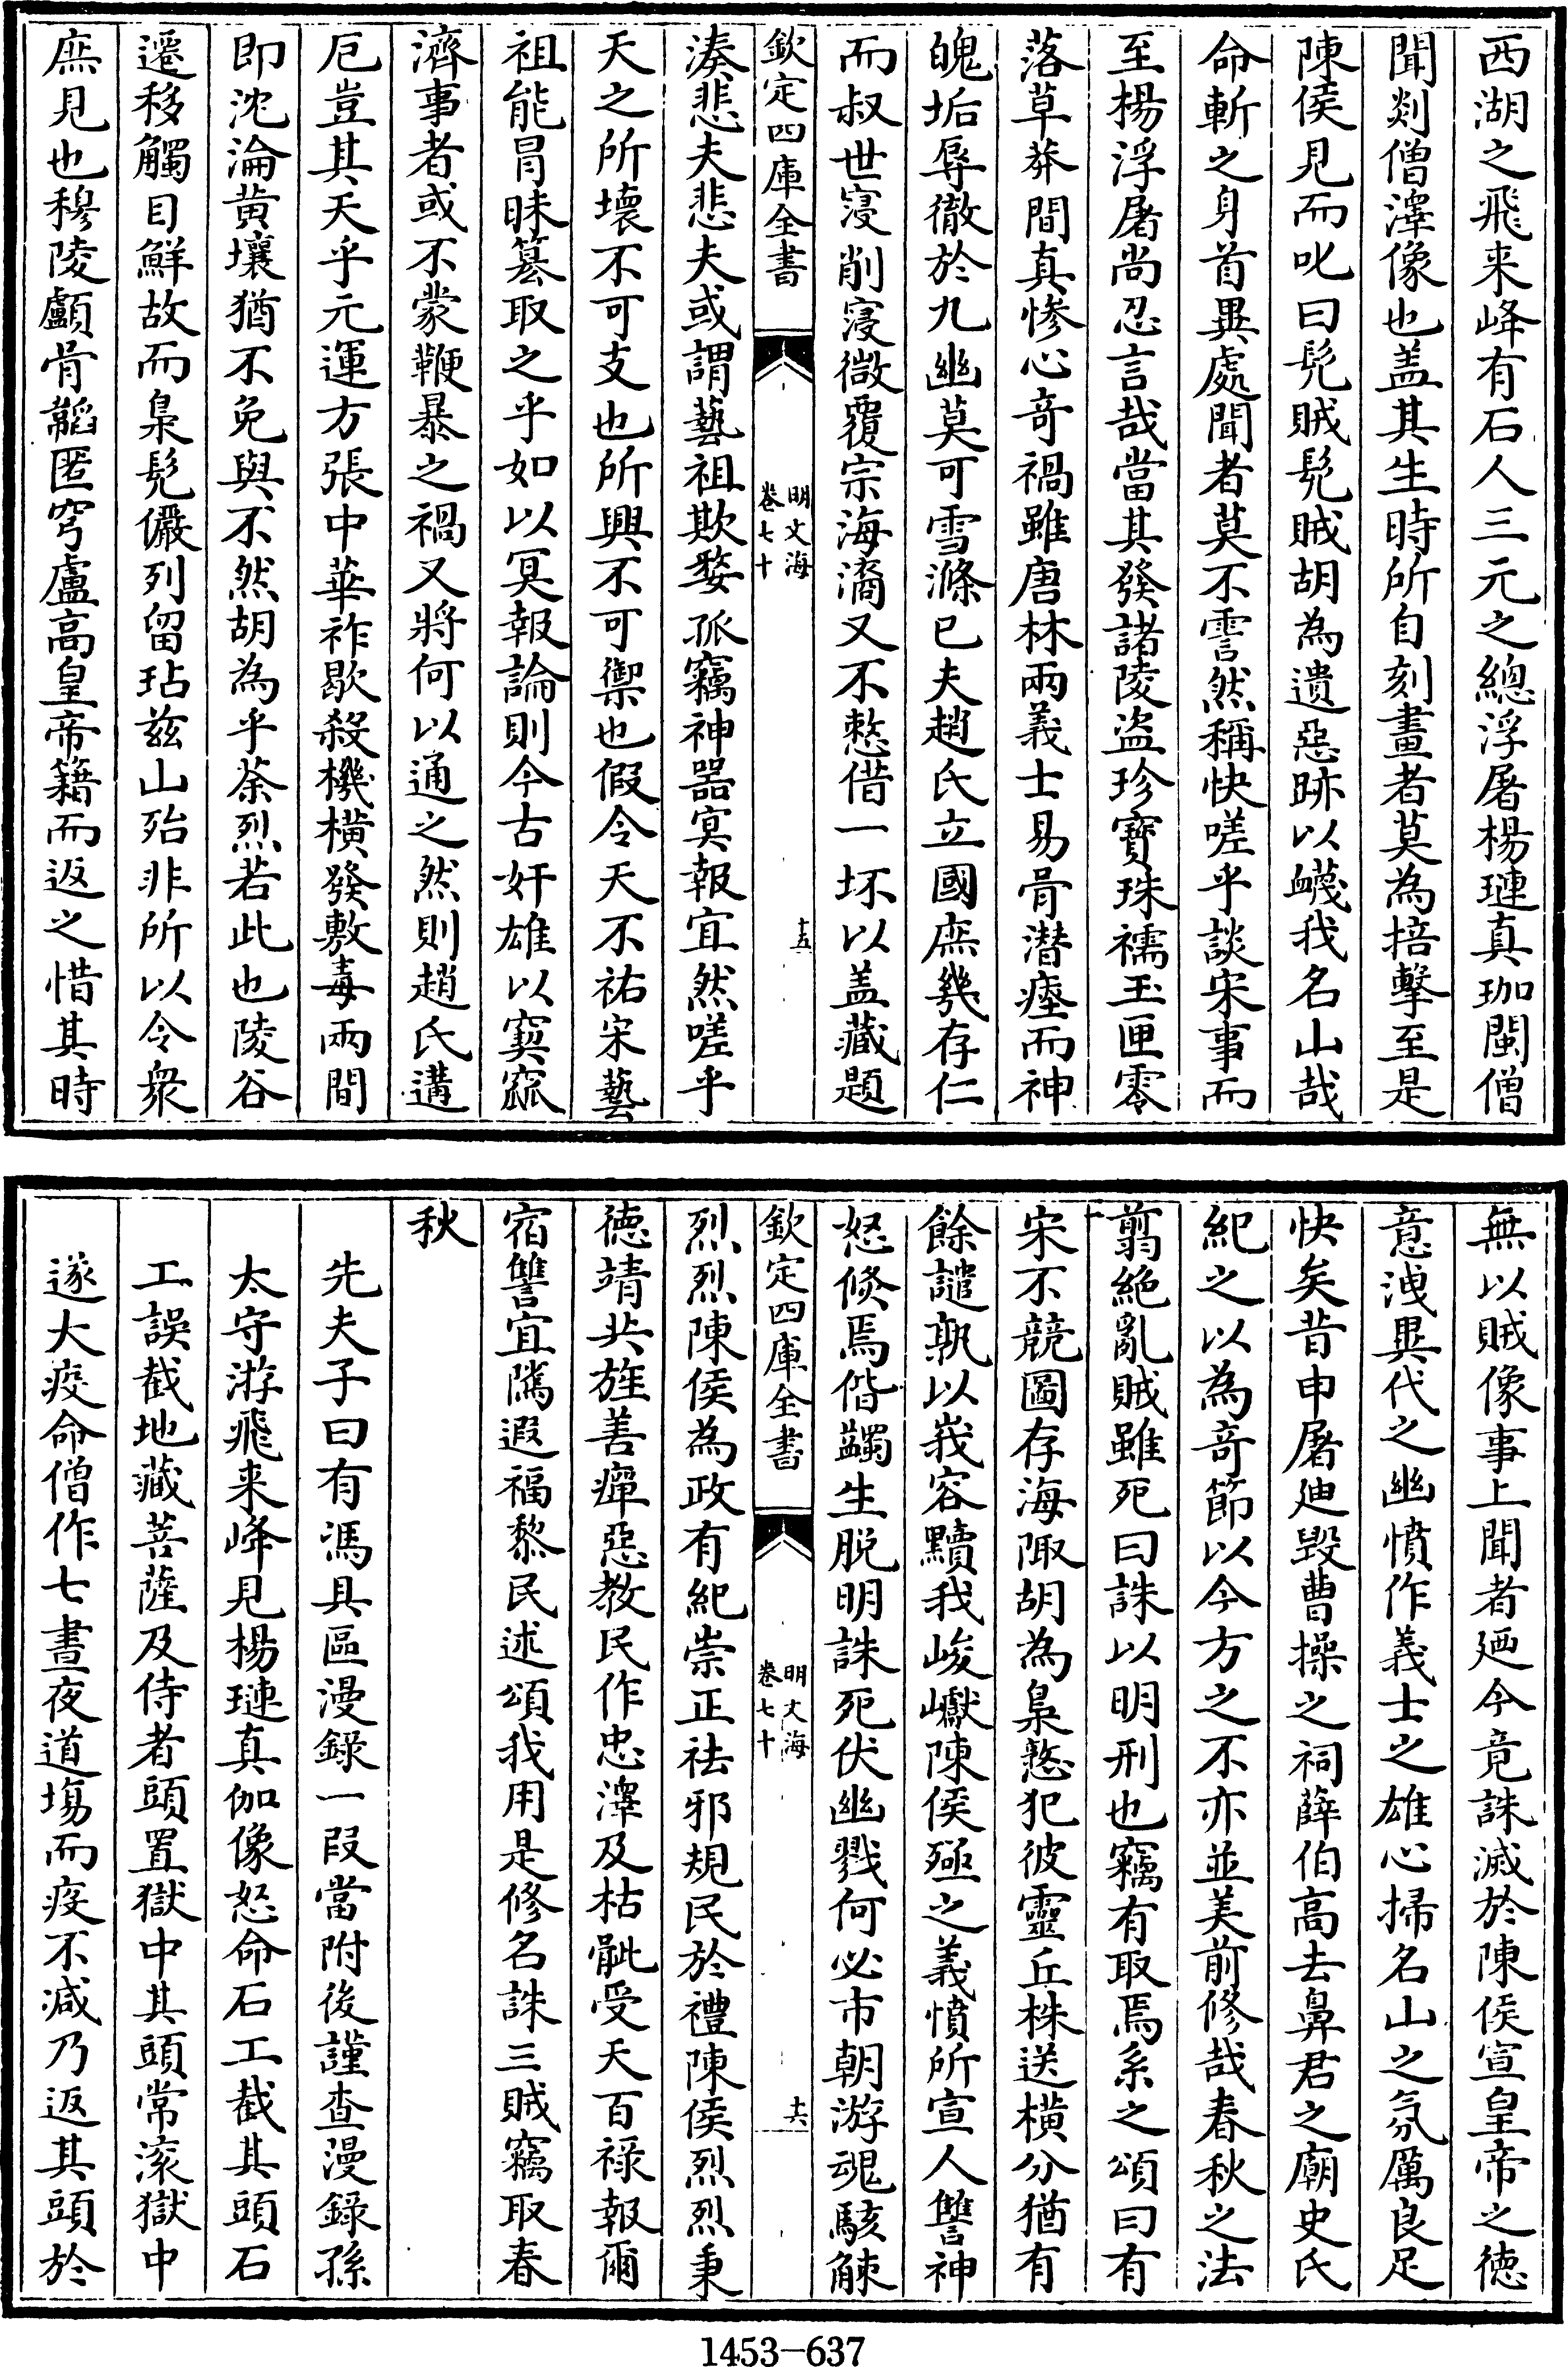 西湖之飛来峰有石人三元之總浮屠楊璉真珈閩僧
聞剡僧澤像也盖其生時所自刻畫者莫為掊擊至是
陳侯見而叱曰髠賊髠賊胡為遺惡跡以衊我名山哉
命斬之身首異處聞者莫不霅然稱快嗟乎談宋事而
至楊浮屠尚忍言哉當其發諸陵盗珍寶珠襦玉匣零
落草莽間真慘心竒禍雖唐林兩義士易骨潜瘞而神
魄垢辱徹於九幽莫可雪滌已夫趙氏立國庶幾存仁
而叔世寖削寖微覆宗海澨又不憖借一坏以盖藏題
欽定四庫全書
明文海
卷七十
十五
湊悲夫悲夫或謂藝祖欺婺孤竊神器冥報宜然嗟乎
天之所壞不可支也所興不可禦也假令天不祐宋藝
祖能冐昧簒取之乎如以冥報論則今古奸雄以窫窳
濟事者或不蒙鞭暴之禍又將何以通之然則趙氏遘
厄豈其天乎元運方張中華祚歇殺機橫發敷毒兩間
即沈淪黄壤猶不免與不然胡為乎荼烈若此也陵谷
遷移觸目鮮故而梟髠儼列留玷兹山殆非所以令衆
庶見也穆陵顱骨韜匿穹廬高皇帝籍而返之惜其時
無以賊像事上聞者廼今竟誅滅於陳侯宣皇帝之徳
意洩異代之幽憤作義士之雄心掃名山之氛厲良足
快矣昔申屠廸毁曹操之祠薛伯高去鼻君之廟史氏
紀之以為竒節以今方之不亦並美前修哉春秋之法
翦絶亂賊雖死曰誅以明刑也竊有取焉系之頌曰有
宋不競圖存海陬胡為梟憝犯彼靈丘株送橫分猶有
餘譴孰以峩容黷我峻巘陳侯殛之義憤所宣人讐神
怒倐焉偕蠲生脱明誅死伏幽戮何必市朝游魂駭觫
欽定四庫全書
明文海
卷七十
十六
烈烈陳侯為政有紀崇正祛邪規民於禮陳侯烈烈秉
徳靖共旌善癉惡教民作忠澤及枯骴受天百禄報爾
宿讐宜隲遐福黎民述頌我用是修名誅三賊竊取春
秋
先夫子曰有馮具區漫錄一叚當附後謹查漫錄孫
太守游飛来峰見楊璉真伽像怒命石工截其頭石
工誤截地藏菩薩及侍者頭置獄中其頭常滚獄中
遂大疫命僧作七晝夜道塲而疫不减乃返其頭於
1453-637